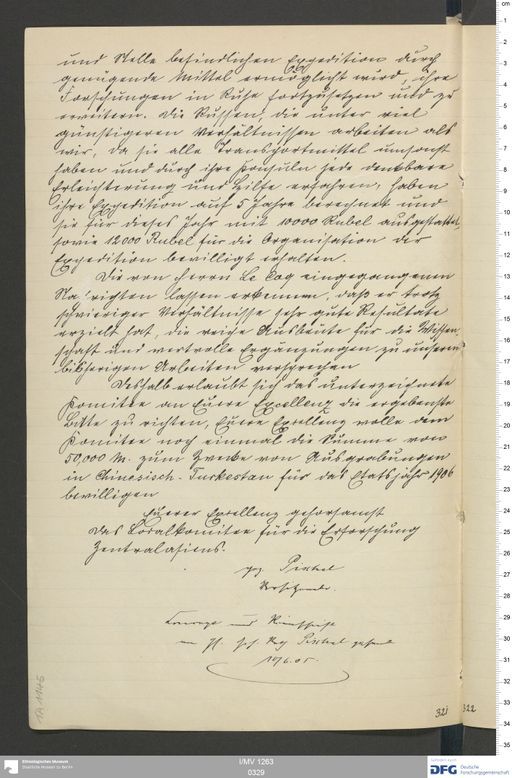 und Stelle befindlichen Expedition durch
genügende Mittel ermöglicht wird, ihre
Forschungen in Ruhe fortzusetzen und zu
erweitern. Die Russen, die unter viel
günstigeren Verhältnissen arbeiten als
wir, da sie alle Transportmittel umsonst
haben und durch ihre Konsuln jede denkbare
Erleichterung und Hilfe erfahren, haben
ihre Expedition auf 5 Jahre berechnet und
sie für dieses Jahr mit 10000 Rubel ausgestattet,
sowie 12000 Rubel für die Organisation der
Expedition bewilligt erhalten.
Die von Herrn Le Coq eingegangenen
Nachrichten lassen erkennen, daß er trotz
schwieriger Verhältnisse sehr gute Resultate
erzielt hat, die reiche Ausbeute für die Wissen-
schaft und wertvolle Ergänzungen zu unseren
bisherigen Arbeiten versprechen
Deshalb erlaubt sich das unterzeichnete
Komitee an Euere Excellenz die ergebenste
Bitte zu richten, Euere Excellenz wolle dem
Komitee noch einmal die Summe von
50,000 M. zum Zwecke von Ausgrabungen
in Chinesisch-Turkestan für das Etatsjahr 1906
bewilligen
Euerer Excellenz gehorsamst
Das Lokalkomitee für die Erforschung
Zentralasiens.
gez. Pischel
Vorsitzender.
Pischel
321
322
IA 1145
Ethnologisches Museum
Staatliche Museen zu Berlin
I/MV 1263
0329
Gefördert durch
DFG Deutsche
Forschungsgemeinschaft
cm
1
2
3
4
5
6
7
8
9
10
11
12
13
14
15
16
17
18
19
20
21
22
23
24
25
26
27
28
29
30
31
32
33
34
35